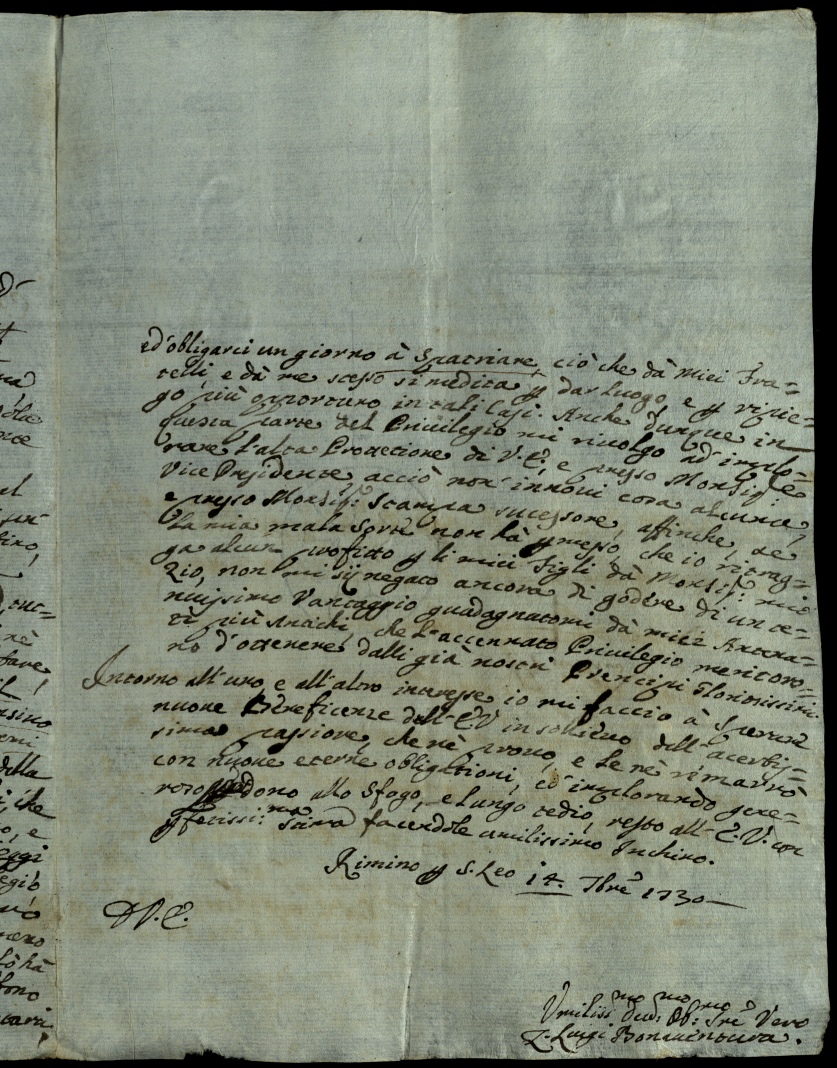 ed'obligarci un giorno à Spatriare, ciò che dà miei Fra=
telli, e dà me stesso si medita p dar luogo, e p ripie=
go più opportuno in tali Casi. Anche dunque in
questa parte del Privilegio mi rivolgo ad implo=
rare l'alta Protettione di V. E., e presso Monsig.re
Vice Presidente acciò non innovi cosa alcuna,
e presso Monsig.r Scampa sucessore, affinche, se
la mia mala Sorte non hà pmesso, che io ritrag=
ga alcun profitto p li miei Figli dà Monsig.r mio
Zio, non mi sij negato ancora di godere di un te=
nuissimo Vantaggio guadagnatomi dà miei Antena=
ti più Antichi, che l'accennato Privilegio meritoro=
no d'ottenere dalli già nostri Prencipi Gloriosissimi.
Intorno all'uno, e all'altro interesse io mi faccio à Sperare
nuove Beneficenze dell'E.V. in sollievo dell'acerbis=
sima passione, che nè provo, e Le nè rimarrò
con nuove eterne obligationi, ed implorando gene=
roso pdono allo Sfogo, e Lungo tedio, resto all'E.V. con
pfetissi:ma Stima facendole umilissimo Inchino.
Rimino p S. Leo 14. 7bre 1730
D V. E.
Umiliss.mo Dev.mo Ob.mo Sre Vero
Luigi Bonaventura.